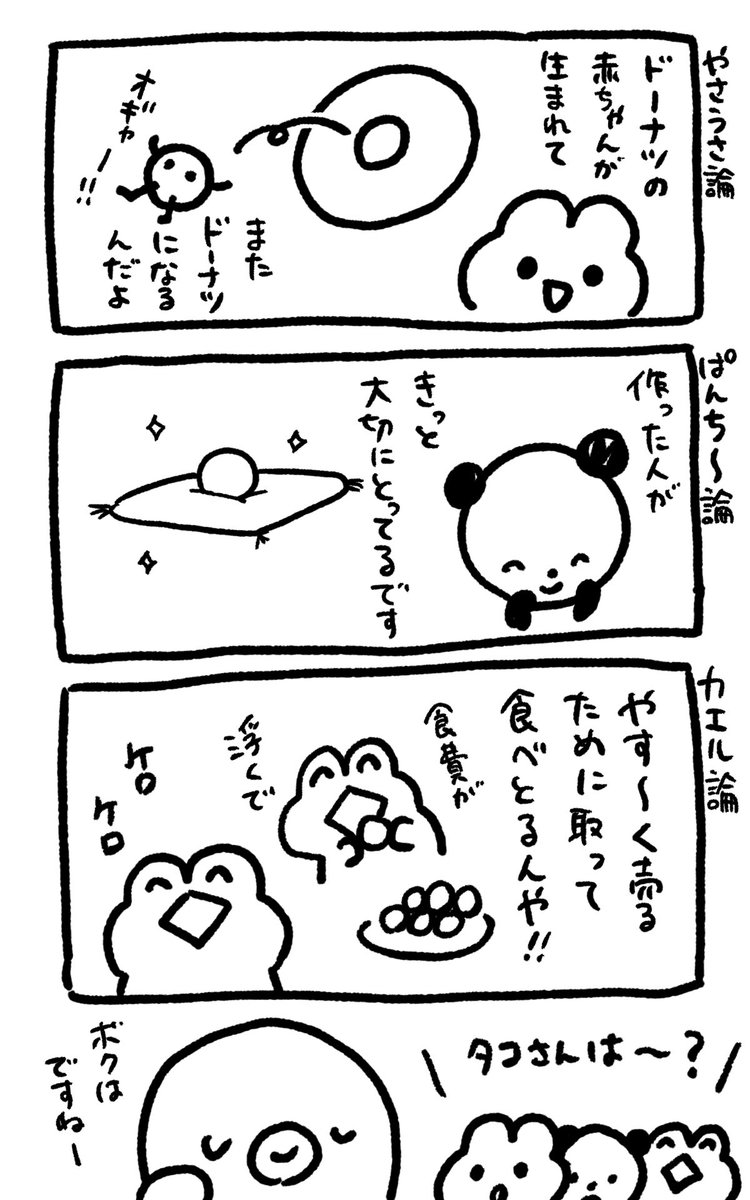 やさうさ論
ドーナツの
赤ちゃんが
生まれて
オギャー!!
また
ドーナツ
になる
んだよ
ぱんち〜論
作った人が
きっと
大切にとってるです
カエル論
やす〜く売る
ために取って
食べとるんや!!
食費が
浮くで
ケロ
ケロ
タコさんは〜?
ボクは
ですねー